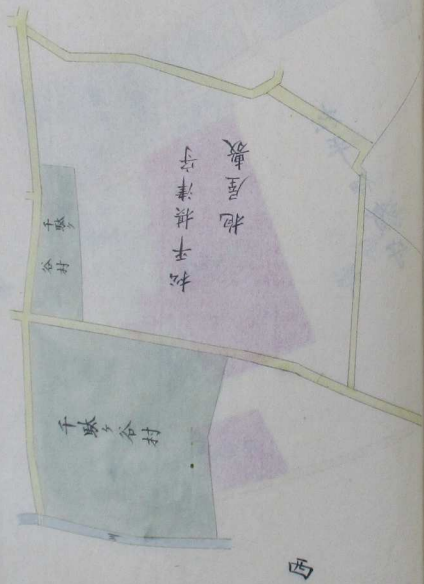 松平摂津守
抱屋敷
千駄ヶ
谷村
千駄ヶ谷村
西